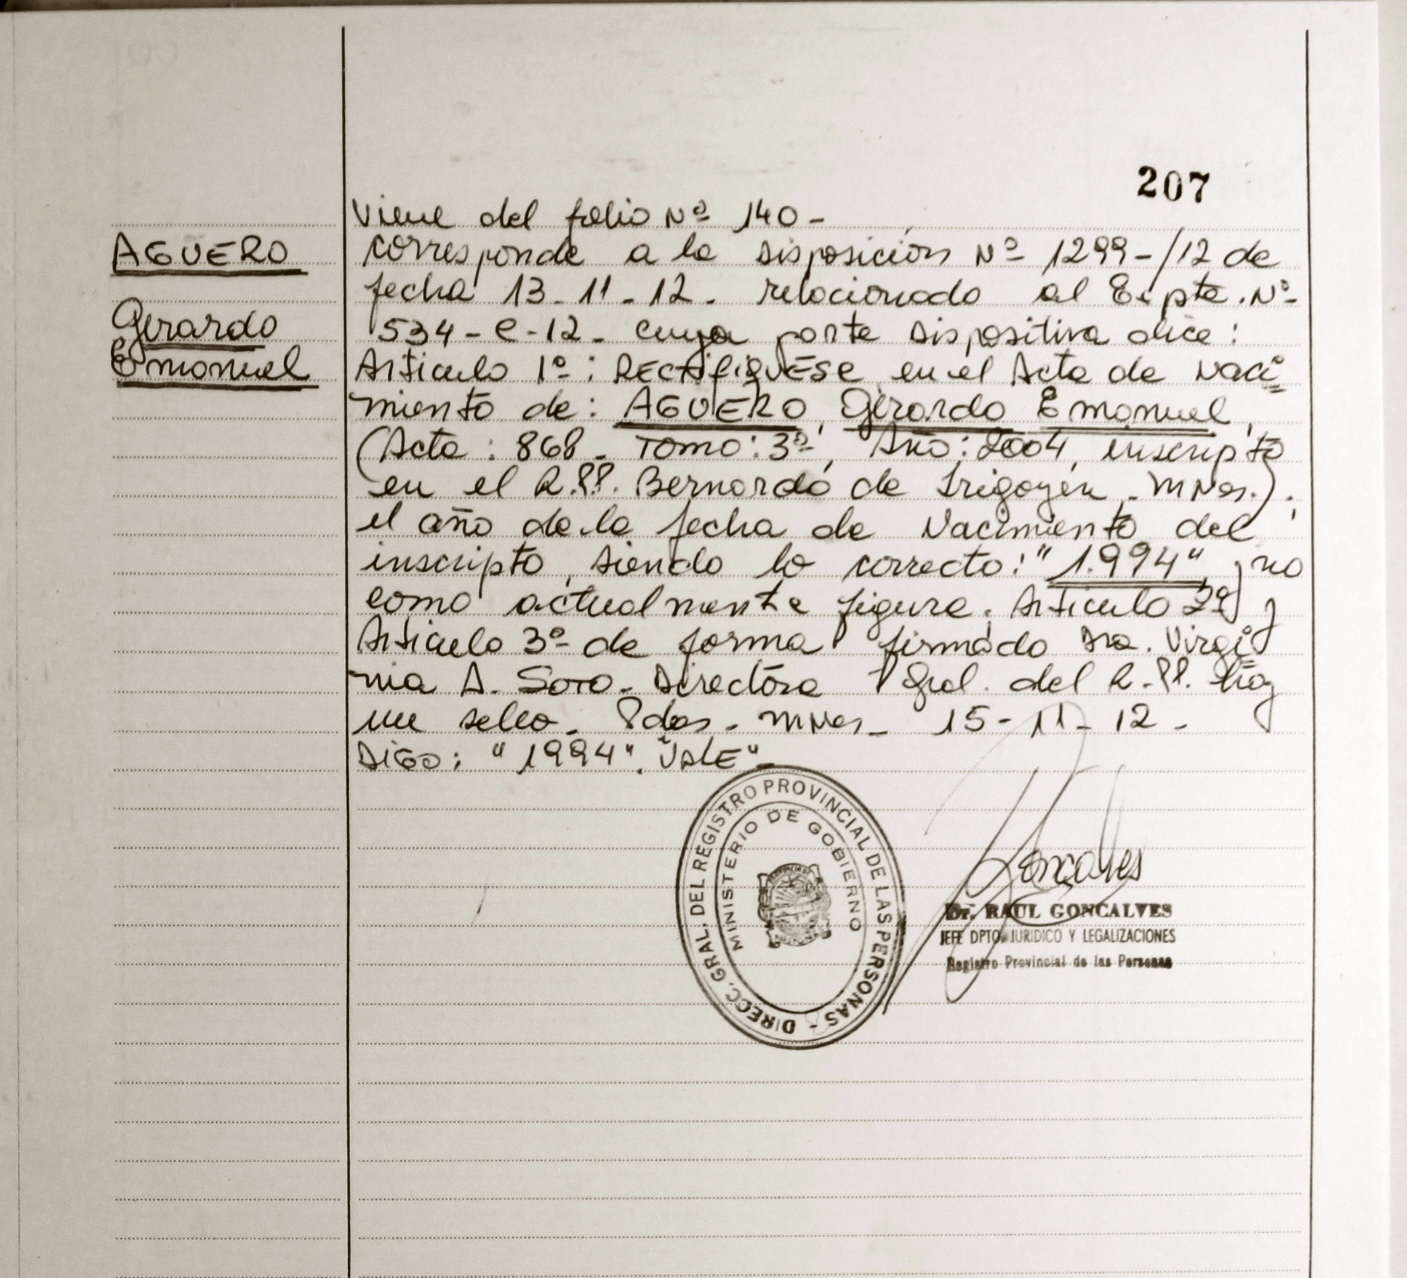 207
Viene del folio Nº 140-
AGUERO
Gerardo
Emanuel
corresponde a la Disposición Nº 1299-/12 de
fecha 13-11-12- relacionado al Expte. Nº
534-C-12- cuya parte Dispositiva dice:
Artículo 1º: RECTIFIQUESE en el Acta de Naci
miento de: AGUERO, Gerardo Emanuel,
(Acta: 868- TOMO: 3º, Año: 2004, inscripto
en el R.PP. Bernardo de Irigoyen - MNes.).
el año de la fecha de Nacimiento del
inscripto, siendo lo correcto: "1.994" y no
como actualmente figura. Artículo 2º y
Artículo 3º de forma firmado Dra. Virgi
nia A. SOTO- Directora Gral. del R.PP. Hay
un sello- Pdas- MNes- 15-11-12-
DIGO: "1994". "VALE"-
DIRECC. GRAL. DEL REGISTRO PROVINCIAL DE LAS PERSONAS -
MINISTERIO DE GOBIERNO
Goncalves
Dr. RAUL GONCALVES
JEFE DPTO. JURIDICO Y LEGALIZACIONES
Registro Provincial de las Personas